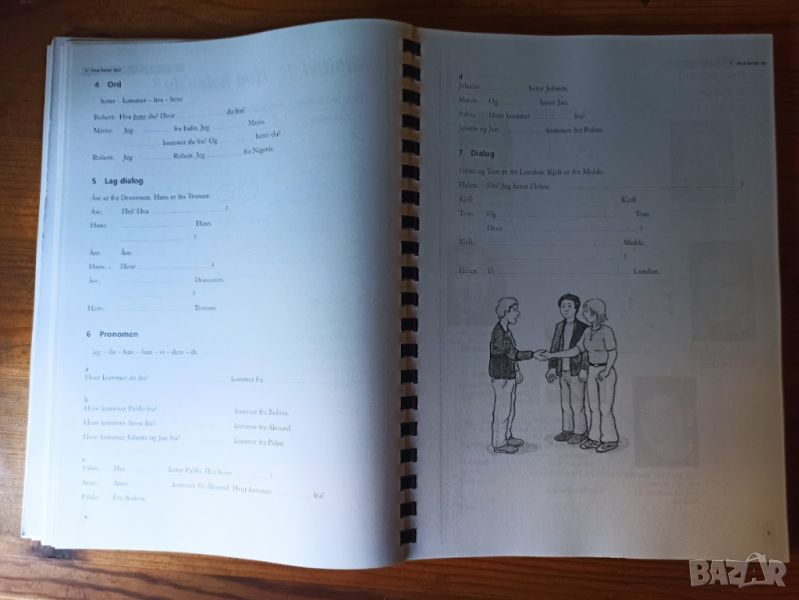 1 - Hva heter du?
4 Ord
heter – kommer – hva – hvor
Robert: Hva heter du? Hvor ... du fra?
Maria: Jeg ... fra Italia. Jeg ... Maria.
... kommer du fra? Og ... heter du?
Robert: Jeg ... Robert. Jeg ... fra Nigeria.
5 Lag dialog
Åse er fra Drammen. Hans er fra Tromsø.
Åse: Hei! Hva ... ?
Hans: ... Hans.
... ?
Åse: Åse.
Hans: Hvor ... ?
Åse: ... Drammen.
... ?
Hans: ... Tromsø.
6 Pronomen
jeg – du – han – hun – vi – dere – de
a
Hvor kommer du fra? ... kommer fra ...
b
Hvor kommer Pablo fra? ... kommer fra Bolivia.
Hvor kommer Anne fra? ... kommer fra Ålesund.
Hvor kommer Jolanta og Jan fra? ... kommer fra Polen.
c
Pablo: Hei ... heter Pablo. Hva heter ... ?
Anne: Anne. ... kommer fra Ålesund. Hvor kommer ... fra?
Pablo: Fra Bolivia.
1 - Hva heter du
d
Jolanta: ... heter Jolanta.
Marek: Og ... heter Jan.
Pablo: Hvor kommer ... fra?
Jolanta og Jan: ... kommer fra Polen.
7 Dialog
og Tom er fra London. Kjell er fra Molde.
Helen: Hei! Jeg heter Helen. ... ?
Kjell: ... Kjell.
Tom: Og ... Tom.
Hvor ... ?
Kjell: ... Molde.
... ?
Helen: Vi ... London.
BAZAR